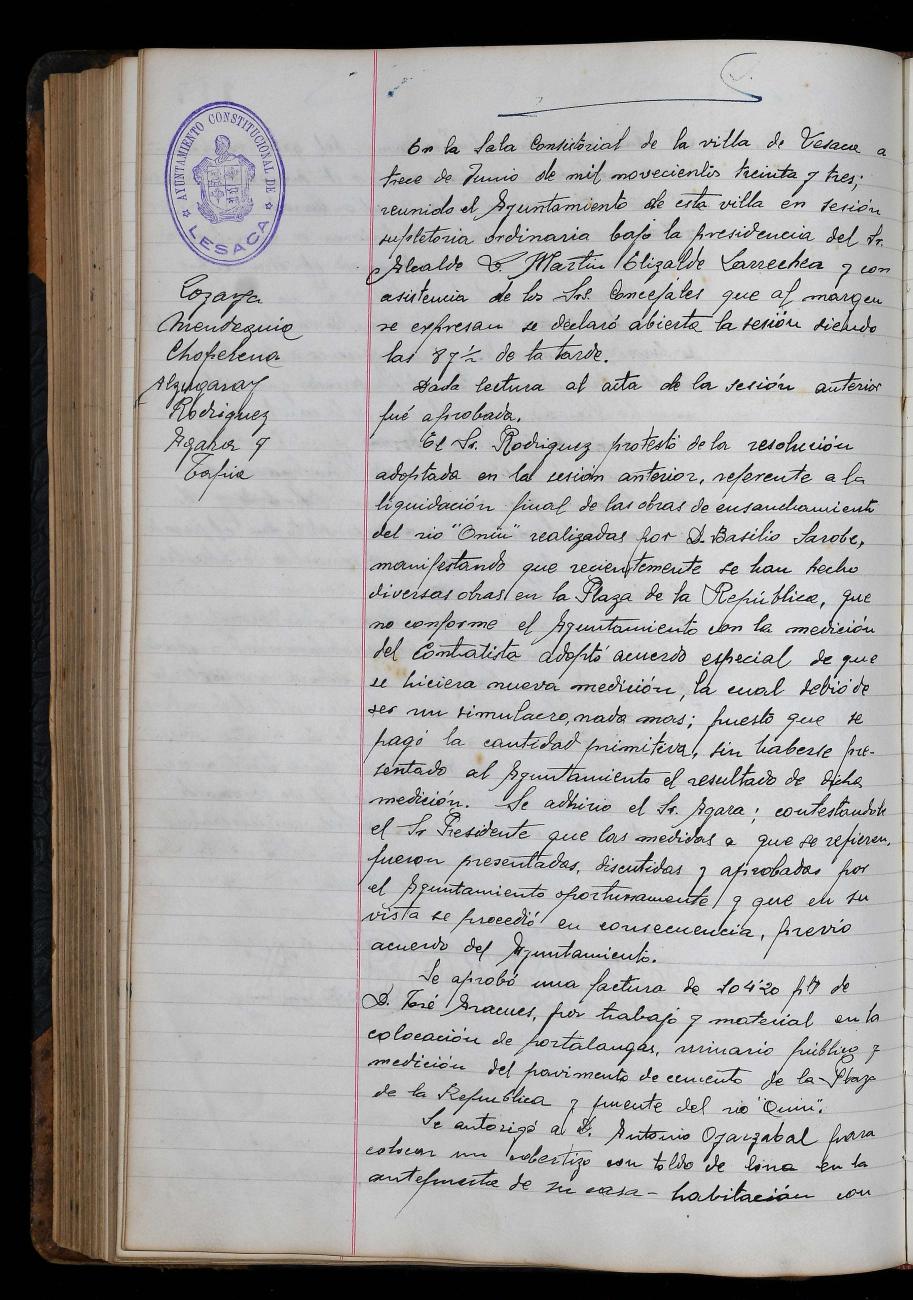 AYUNTAMIENTO CONSTITUCIONAL DE
LESACA
Lozaya
Mendeguia
Choperena
Alzugaray
Rodriguez
Agara y
Tapia
En la Sala Consistorial de la villa de Vesaca a
trece de Junio de mil novecientos treinta y tres;
reunido el Ayuntamiento de esta villa en sesión
supletoria ordinaria bajo la presidencia del Sr.
Alcalde D. Martin Elizalde Larrechea y con
asistencia de los Srs. Concejales que al margen
se expresan se declaró abierta la sesión siendo
las 8 y ½ de la tarde.
Dada lectura al acta de la sesión anterior
fué aprobada.
El Sr. Rodriguez protestó de la resolución
adoptada en la sesión anterior, referente a la
liquidación final de las obras de ensanchamiento
del rio "Onin" realizadas por D. Basilio Sarobe,
manifestando que recientemente se han hecho
diversas obras en la Plaza de la República, que
no conforme el Ayuntamiento con la medición
del Contratista adoptó acuerdo especial de que
se hiciera nueva medición, la cual debió de
ser un simulacro, nada mas; puesto que se
pagó la cantidad primitiva, sin haberse pre-
sentado al Ayuntamiento el resultado de dicha
medición. Se adhirio el Sr. Agara; contestandole
el Sr Presidente que las medidas a que se refieren,
fueron presentadas, discutidas y aprobadas por
el Ayuntamiento oportunamente y que en su
vista se procedió en consecuencia, previo
acuerdo del Ayuntamiento.
Se aprobó una factura de 104'20 pts de
D. José Aracues, por trabajo y material en la
colocación de portalangas, urinario público y
medición del pavimento de cemento de la Plaza
de la Republica y puente del rio "Onin".
Se autorizó a D. Antonio Oyarzabal para
colocar un cobertizo con toldo de lona en la
antepuerta de su casa-habitación con